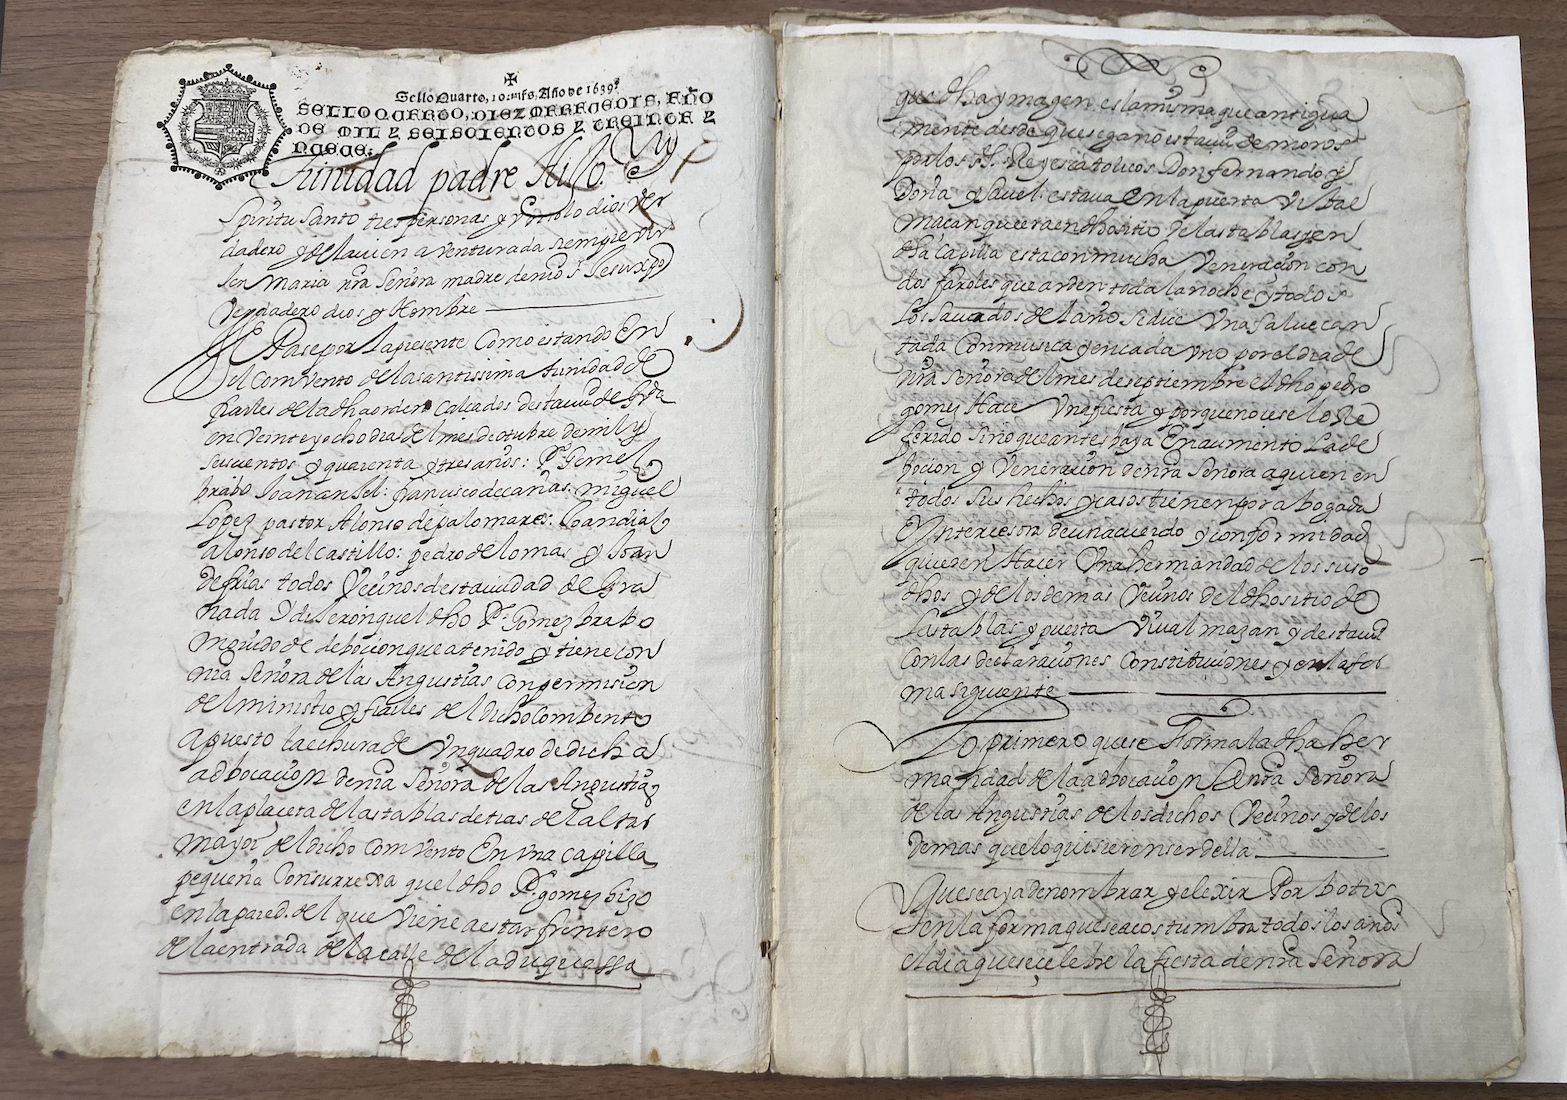 Sello Quarto, 10. mrs. Año de 1639.
SELLO QVARTO, DIEZ MARAVEDIS, AÑO
DE MIL Y SEISCIENTOS Y TREINTA Y
NVEVE.
trinidad padre Hijo y
Spiritu Santo tres personas y un solo dios ver
dadero y de la vien aventurada siempre vir
jen Maria nra Señora madre de nro Sr Jesuxpo
verdadero dios y Hombre
Sepase por la presente Como estando En
el Comvento de la santissima trinidad de
frailes de la dha orden calçados desta ciud de Grda
en veinte y ocho dias del mes de otubre de mil y
seiscientos y quarenta y tres años: Po Gomez
brabo Joan : francisco de cañas: miguel
Lopez pastor Alonso de palomares: Joan diaz
alonso del castillo: pedro de lomas y Joan
de frias todos Vecinos desta ciudad de Gra
nada Y dixeron quel dho Po Gomez brabo
movido de debocion que a tenido y tiene con
nra Señora de las Angustias con permission
del ministro y frailes del dicho Combento
a puesto la echura de Un quadro de dicha
adbocacion de nra Señora de las Angustias
en la placeta de las tablas detras del altar
mayor del dicho comvento En una capilla
pequeña Con su rrexa quel dho Po gomez hizo
en la pared. del que viene a estar frontero
de la entrada de la calle de la duquessa
que dha ymagen es la misma que antigua
mente desde que se gano esta ciud de moros
por los SS. Reyes catolicos Don fernando y
Doña ysavel: estava en la puerta vibal
maçan que era en dho sitio de las tablas y en
dha capilla esta con mucha veneracion con
dos faroles que arden toda la noche y todos
los savados del año se dice una salve can
tada con musica y en cada uno por el dia de
nra Señora del mes de septiembre el dho pedro
gomez Hace una fiesta y porque no cese lo Re
ferido sino que antes baya En aumento La de
bocion y veneracion de nra Señora a quien en
todos sus hechos y casos tienen por abogada
e Yntercesora de un acuerdo y conformidad
quieren Hacer Una hermandad de los suso
dhos y de los demas Vecinos del dho sitio de
las tablas y puerta vivalmazan y desta ciud
con las declaraciones constituciones y en la for
ma siguiente
Lo primero que se Forma la dha her
mandad de la adbocacion de nra Señora
de las Angustias de los dichos Vecinos y de los
demas que lo quisieren ser della
Que se aya de nombrar y elexir Por botos
en la forma que se acostumbra todos los años
el dia que se çelebre la fiesta de nra Señora